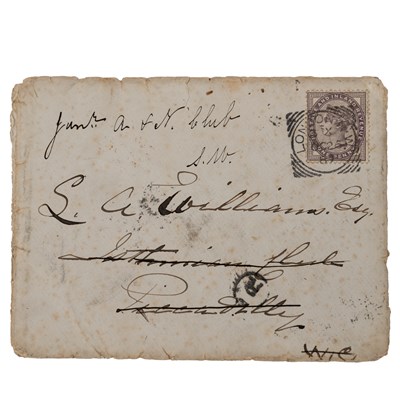 Junr. A. & N. Club
S.W.
L. A. Williams, Esq.
Isthmian Club
Piccadilly
W.C
LONDON
R